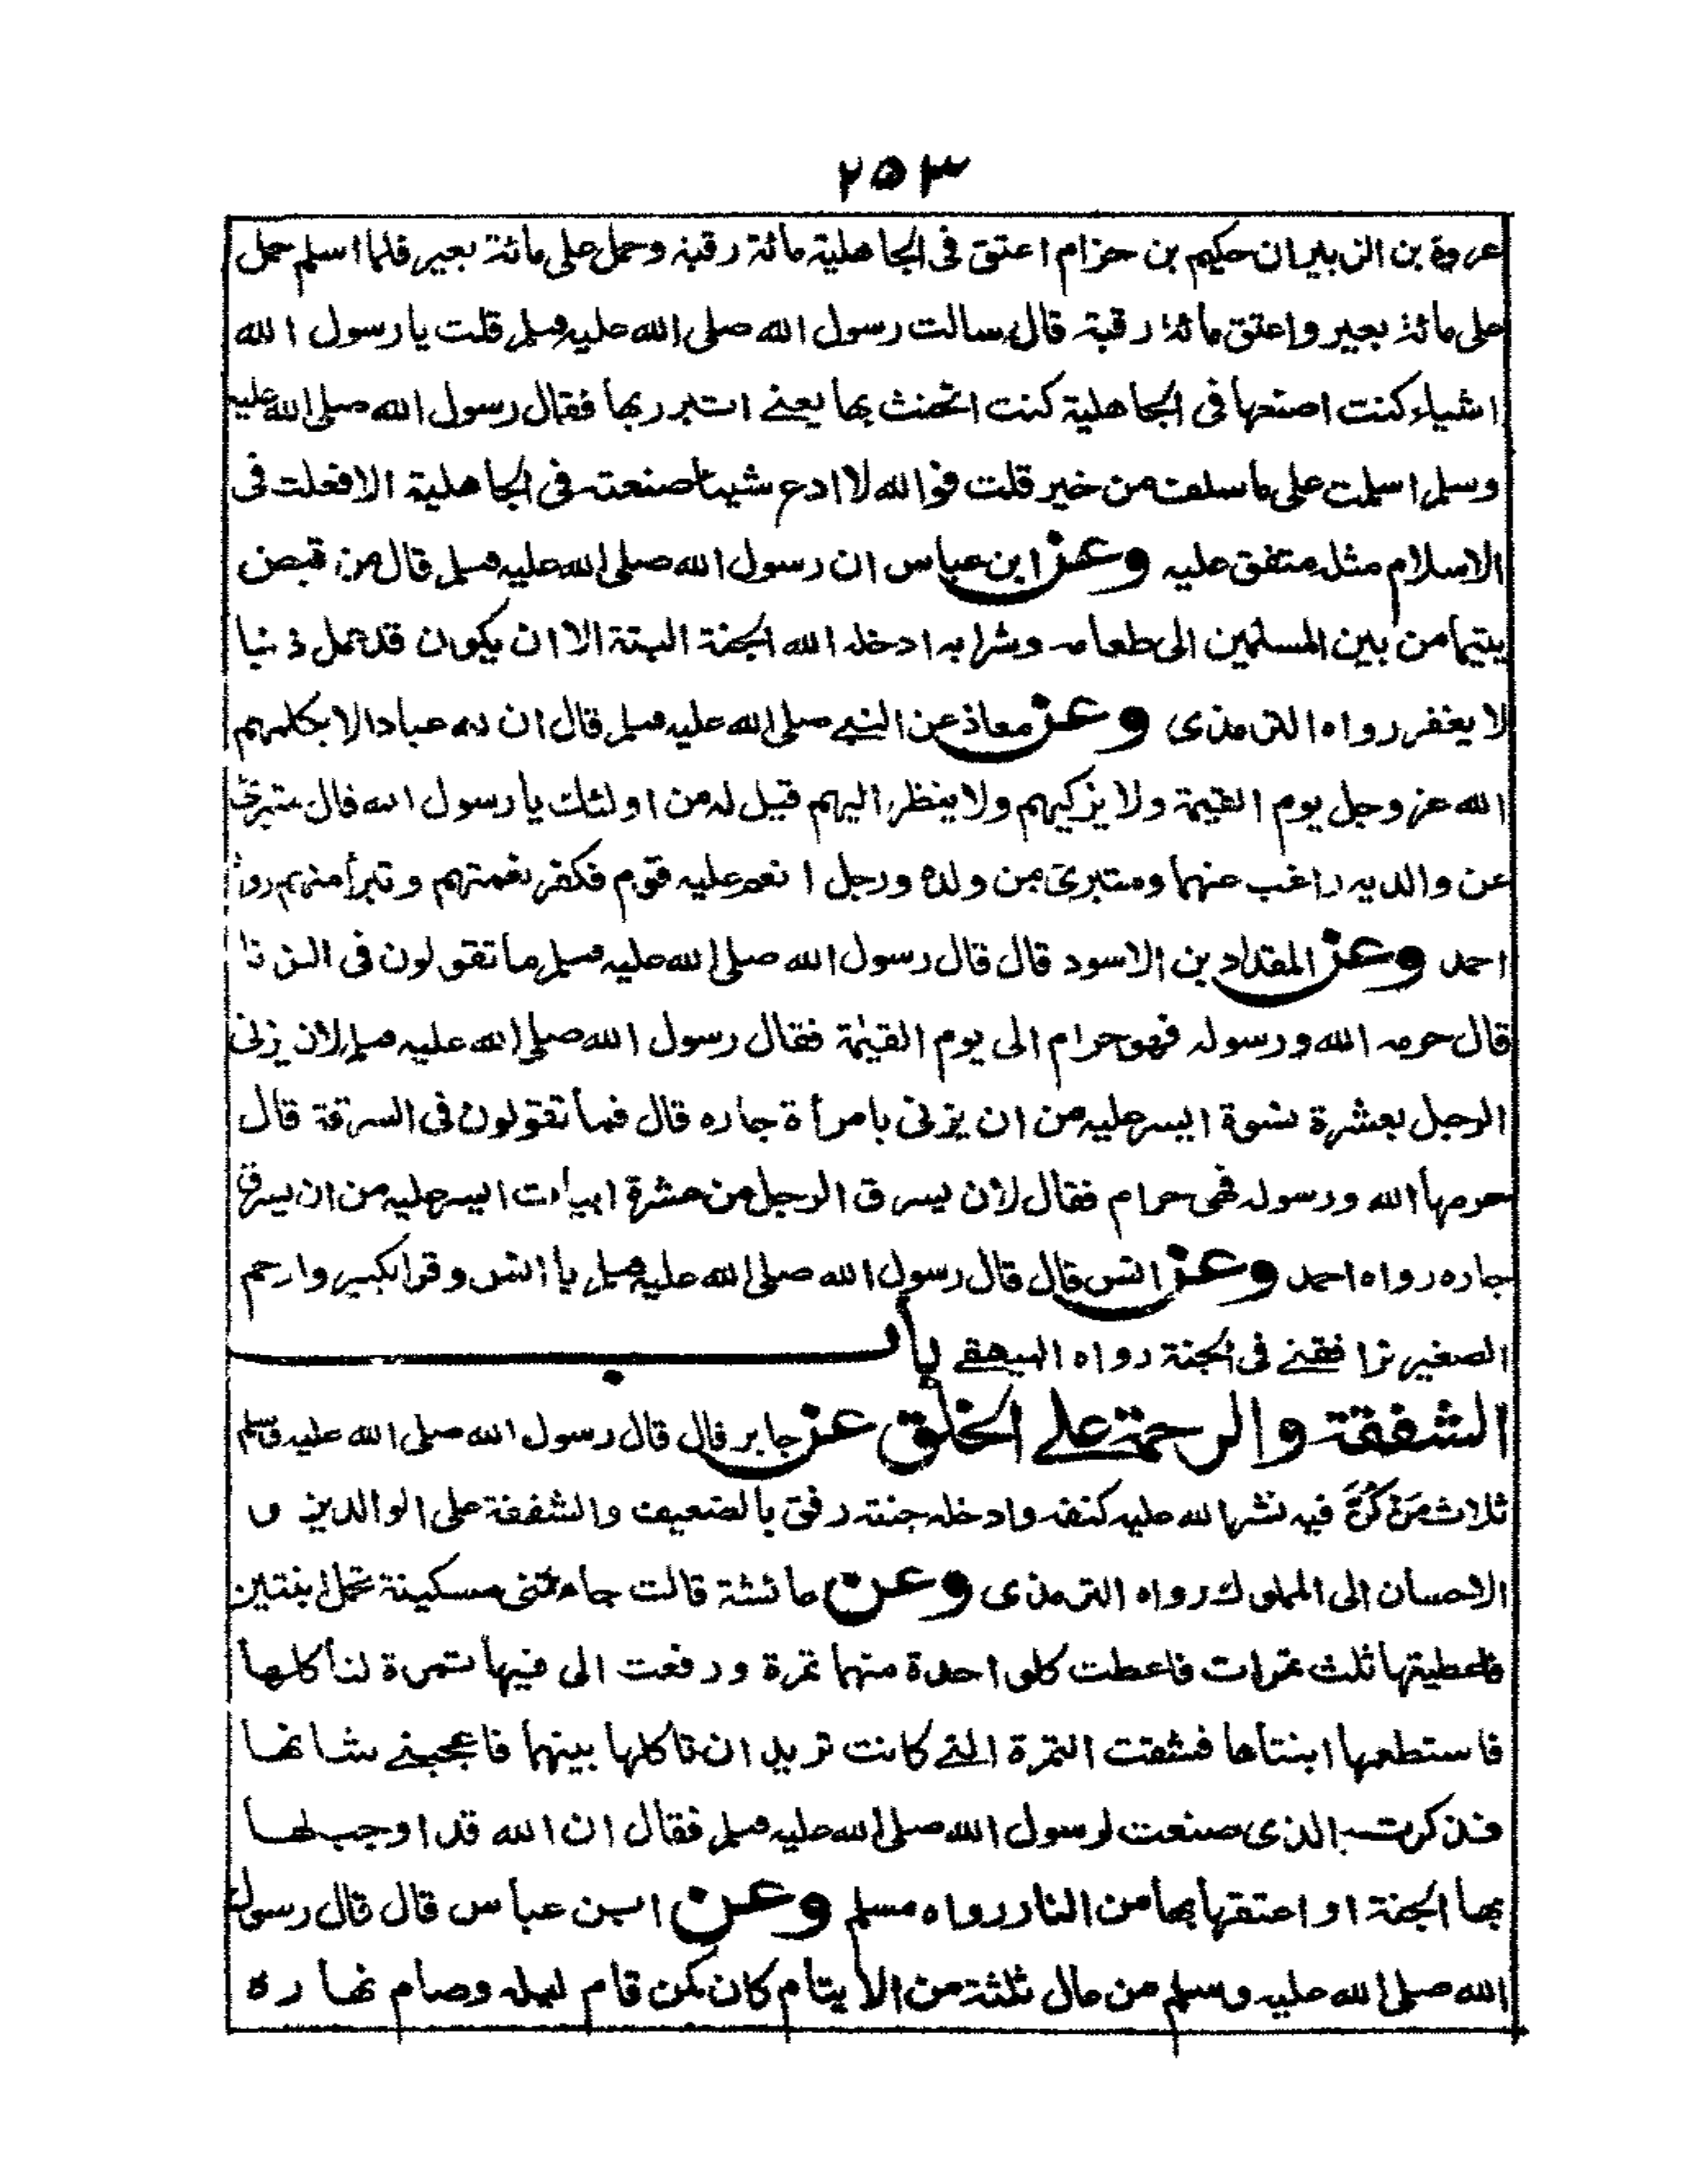 ٢٥٣
عروة بن الزبيران حكيم بن حزام اعتق فى الجاهلية مائة رقبة وحمل على مائة بعير فلما اسلم حمل
على مائة بعير واعتق مائة رقبة قال سالت رسول الله صلى الله عليه وسلم قلت يا رسول الله
اشياء كنت اصنعها فى الجاهلية كنت اتحنث بها يعنے اتبرر بها فقال رسول الله صلى الله عليه
وسلم اسلمت على ما سلف من خير قلت فوالله لا ادع شيئا صنعته فى الجاهلية الا فعلت فى
الاسلام مثله متفق عليه وعن ابن عباس ان رسول الله صلى الله عليه وسلم قال من قبض
يتيما من بين المسلمين الى طعامه وشرابه ادخله الله الجنة البتة الا ان يكون قد عمل ذنبا
لا يغفر رواه الترمذى وعن معاذ عن النبے صلى الله عليه وسلم قال ان لله عبادا لا يكلمهم
الله عز وجل يوم القيمة ولا يزكيهم ولا ينظر اليهم قيل له من اولئك يا رسول الله قال متبرئ
عن والديه راغب عنهما ومتبرئ من ولده ورجل انعم عليه قوم فكفر نعمتهم وتبرأ منهم رواه
احمد وعن المقداد بن الاسود قال قال رسول الله صلى الله عليه وسلم ما تقولون فى الزنا
قال حرمه الله ورسوله فهو حرام الى يوم القيمة فقال رسول الله صلى الله عليه وسلم لان يزنى
الرجل بعشرة نسوة ايسر عليه من ان يزنى بامرأة جاره قال فما تقولون فى السرقة قال
حرمها الله ورسوله فهى حرام فقال لان يسرق الرجل من عشرة ابيات ايسر عليه من ان يسرق
جاره رواه احمد وعن انس قال قال رسول الله صلى الله عليه وسلم يا انس وقر الكبير وارحم
الصغير ترافقنے فى الجنة رواه البيهقے باب
الشفقة والرحمة علے الخلق عن جابر قال قال رسول الله صلى الله عليه وسلم
ثلاث من كن فيه نشر الله عليه كنفه وادخله جنته رفق بالضعيف والشفقة على الوالدين و
الاحسان الى المملوك رواه الترمذى وعن عائشة قالت جاءتنى مسكينة تحمل ابنتين
فاعطيتها ثلث تمرات فاعطت كل واحدة منهما تمرة ورفعت الى فيها تمرة لتأكلها
فاستطعمها ابنتاها فشقت التمرة التے كانت تريد ان تاكلها بينهما فاعجبنے شانها
فذكرت الذى صنعت لرسول الله صلى الله عليه وسلم فقال ان الله قد اوجب لها
بها الجنة او اعتقها بها من النار رواه مسلم وعن ابن عباس قال قال رسول
الله صلى الله عليه وسلم من عال ثلثة من الايتام كان كمن قام ليله وصام نهاره